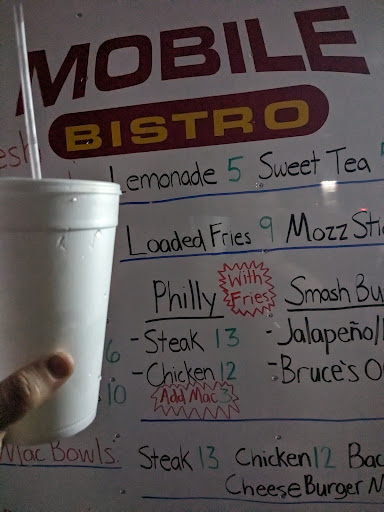 MOBILE
BISTRO
esh
Lemonade 5 Sweet Tea
Loaded Fries 9 Mozz Sti
With Fries
Philly Smash Bu
- Steak 13 - Jalapeño/
6
- Chicken 12 - Bruce's O
10
Add Mac 3
Mac Bowls Steak 13 Chicken 12 Bac
CheeseBurger M